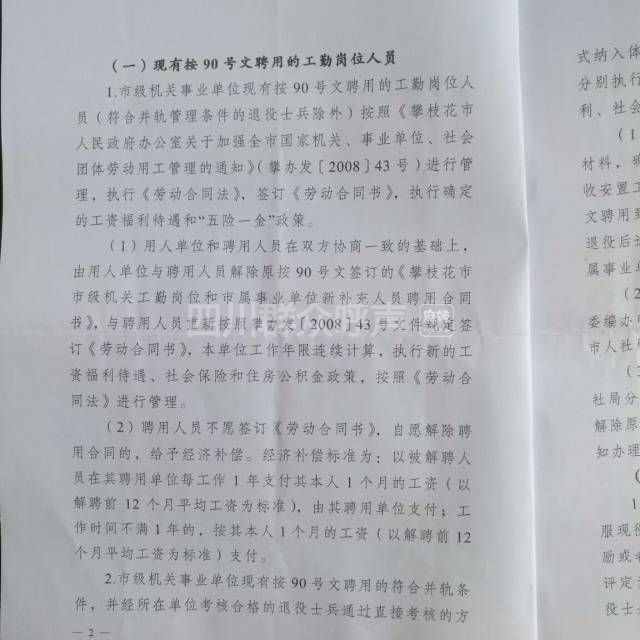 （一）现有按 90 号文聘用的工勤岗位人员
1.市级机关事业单位现有按 90 号文聘用的工勤岗位人
员（符合并轨管理条件的退役士兵除外）按照《攀枝花市
人民政府办公室关于加强全市国家机关、事业单位、社会
团体劳动用工管理的通知》（攀办发〔2008〕43 号）进行管
理，执行《劳动合同法》，签订《劳动合同书》，执行确定
的工资福利待遇和“五险一金”政策。
（1）用人单位和聘用人员在双方协商一致的基础上，
由用人单位与聘用人员解除原按 90 号文签订的《攀枝花市
市级机关工勤岗位和市属事业单位新补充人员聘用合同
书》，与聘用人员重新按照攀办发〔2008〕43 号文件规定签
订《劳动合同书》，本单位工作年限连续计算，执行新的工
资福利待遇、社会保险和住房公积金政策，按照《劳动合
同法》进行管理。
（2）聘用人员不愿签订《劳动合同书》，自愿解除聘
用合同的，给予经济补偿。经济补偿标准为：以被解聘人
员在其聘用单位每工作 1 年支付其本人 1 个月的工资（以
解聘前 12 个月平均工资为标准），由其聘用单位支付；工
作时间不满 1 年的，按其本人 1 个月的工资（以解聘前 12
个月平均工资为标准）支付。
2.市级机关事业单位现有按 90 号文聘用的符合并轨条
件，并经所在单位考核合格的退役士兵通过直接考核的方
— 2 —
式纳入体
分别执行
利、社会
（1）
材料，
收安置工
文聘用到
退役后
属事业单
（2）
委编办
市人社局
（3）
社局分
解除原
知办理
（
1.
服现役
励或者
评定
役士
四川群众呼声